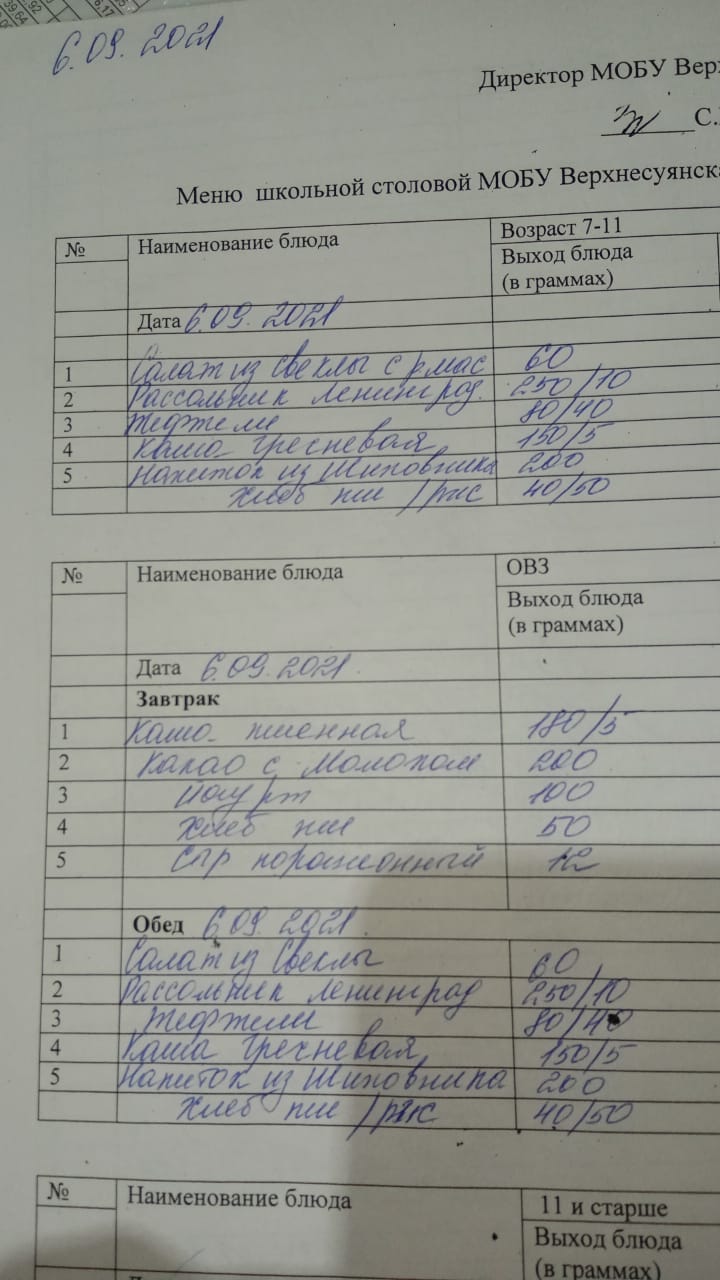 6.09.2021
Директор МОБУ Верх
С.
Меню школьной столовой МОБУ Верхнесуянска
№ Наименование блюда Возраст 7-11
Выход блюда
(в граммах)
Дата 6.09.2021
1 Салат из свеклы с р.мас 60
2 Рассольник Ленинград. 250/10
3 Тефтели 80/40
4 Каша гречневая 150/5
5 Напиток из Шиповника 200
Хлеб пш /рж 40/50
№ Наименование блюда ОВЗ
Выход блюда
(в граммах)
Дата 6.09.2021
Завтрак
1 Каша пшенная 180/5
2 Какао с молоком 200
3 Йогурт 100
4 Хлеб пш 50
5 Сыр порционный 12
Обед 6.09.2021.
1 Салат из Свеклы 60
2 Рассольник Ленинград 250/10
3 Тефтели 80/40
4 Каша Гречневая 150/5
5 Напиток из Шиповника 200
Хлеб пш /рж 40/50
№ Наименование блюда 11 и старше
Выход блюда
(в граммах)